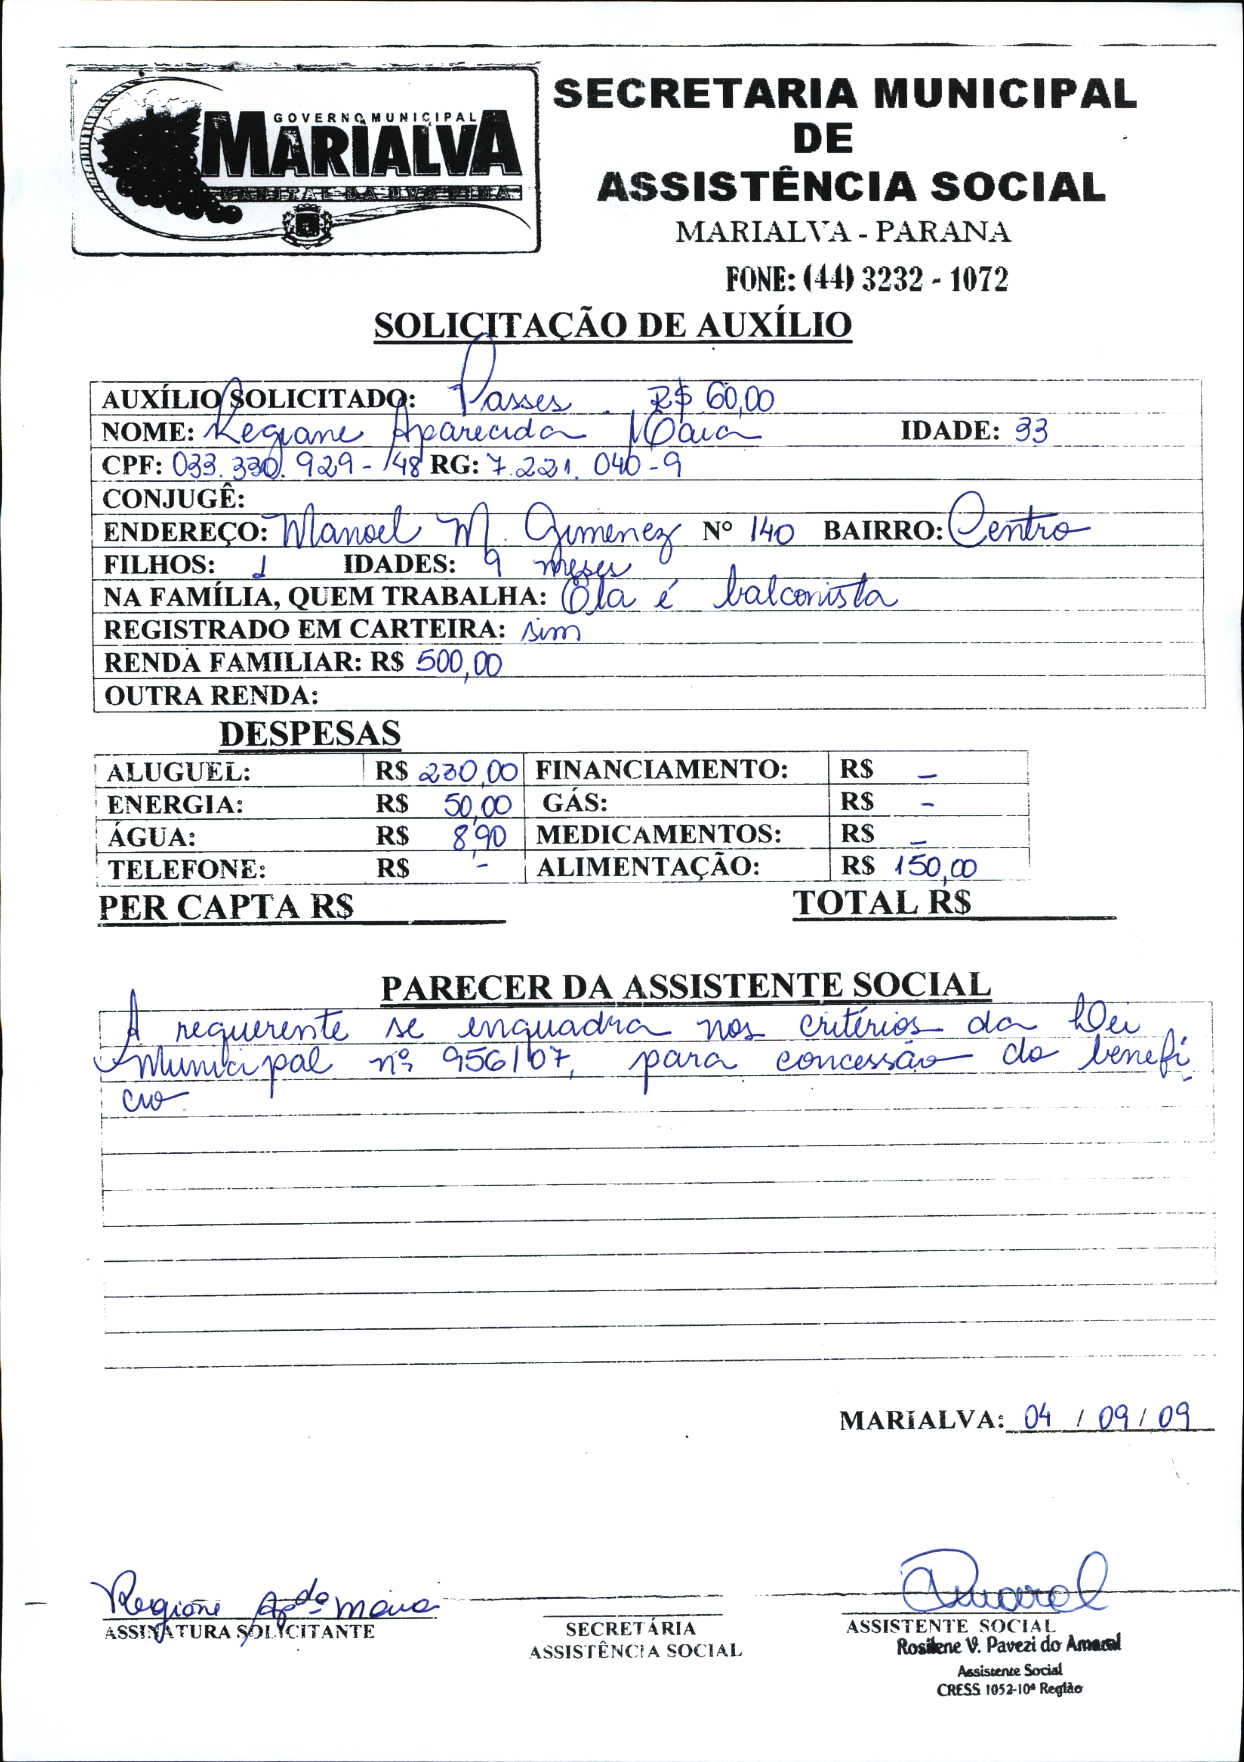 GOVERNO MUNICIPAL
MARIALVA
SECRETARIA MUNICIPAL
DE
ASSISTÊNCIA SOCIAL
MARIALVA - PARANA
FONE: (44) 3232 - 1072
SOLICITAÇÃO DE AUXÍLIO
AUXÍLIO SOLICITADO: Passes R$ 60,00
NOME: Regiane Aparecida Maia IDADE: 33
CPF: 033.330.929-48 RG: 7.221.040-9
CONJUGÊ:
ENDEREÇO: Manoel M. Gimenez Nº 140 BAIRRO: Centro
FILHOS: 1 IDADES: 9 meses
NA FAMÍLIA, QUEM TRABALHA: Ela é balconista
REGISTRADO EM CARTEIRA: sim
RENDA FAMILIAR: R$ 500,00
OUTRA RENDA:
DESPESAS
ALUGUEL: R$ 230,00 FINANCIAMENTO: R$ -
ENERGIA: R$ 50,00 GÁS: R$ -
ÁGUA: R$ 8,90 MEDICAMENTOS: R$ -
TELEFONE: R$ - ALIMENTAÇÃO: R$ 150,00
PER CAPTA R$ TOTAL R$
PARECER DA ASSISTENTE SOCIAL
A requerente se enquadra nos critérios da Lei
Municipal nº 956/07, para concessão do benefí
cio.
MARIALVA: 04 / 09 / 09
Regiane Apda Maia
ASSINATURA SOLICITANTE
SECRETÁRIA
ASSISTÊNCIA SOCIAL
Amaral
ASSISTENTE SOCIAL
Rosilene V. Pavezi do Amaral
Assistente Social
CRESS 1052-10ª Região